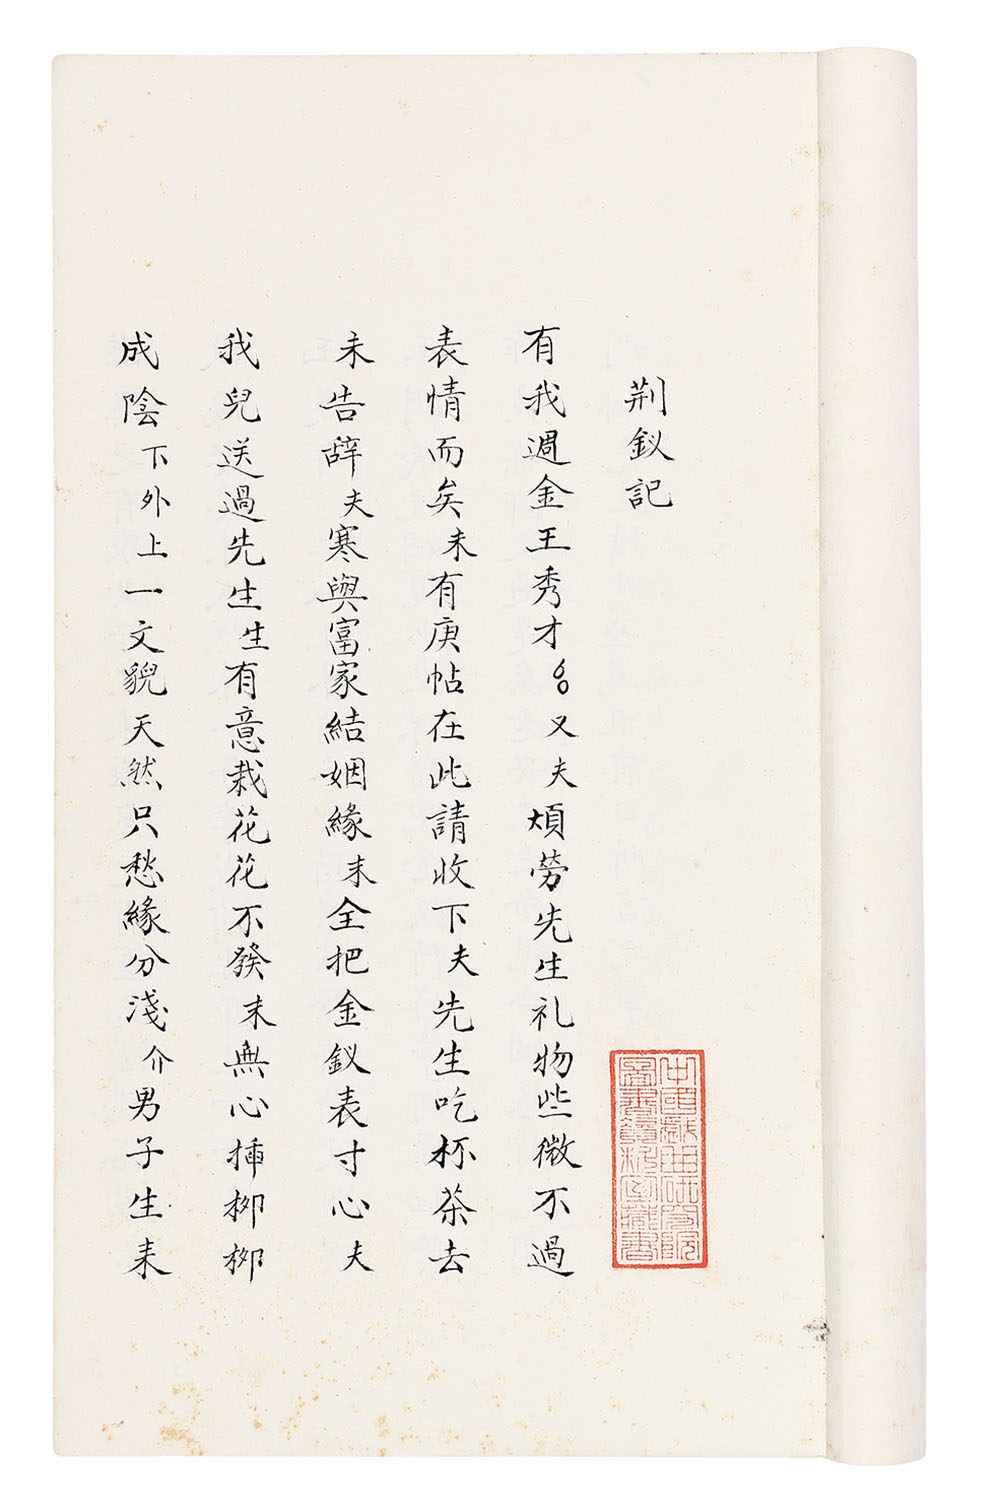 荆釵記
有我週金王秀才又夫煩勞先生礼物些微不過
表情而矣末有庚帖在此請收下夫先生吃杯茶去
末告辞夫寒與富家結姻緣末全把金釵表寸心夫
我兒送過先生生有意栽花花不發末無心揷柳柳
成陰下外上一文貌天然只愁緣分淺介男子生来
中國戲曲研究院
圖書館藏書